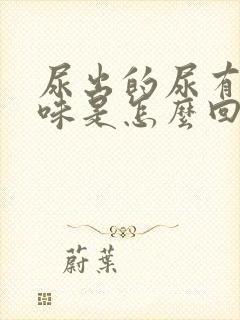 尿出的尿有
味是怎麼回
蔚葉